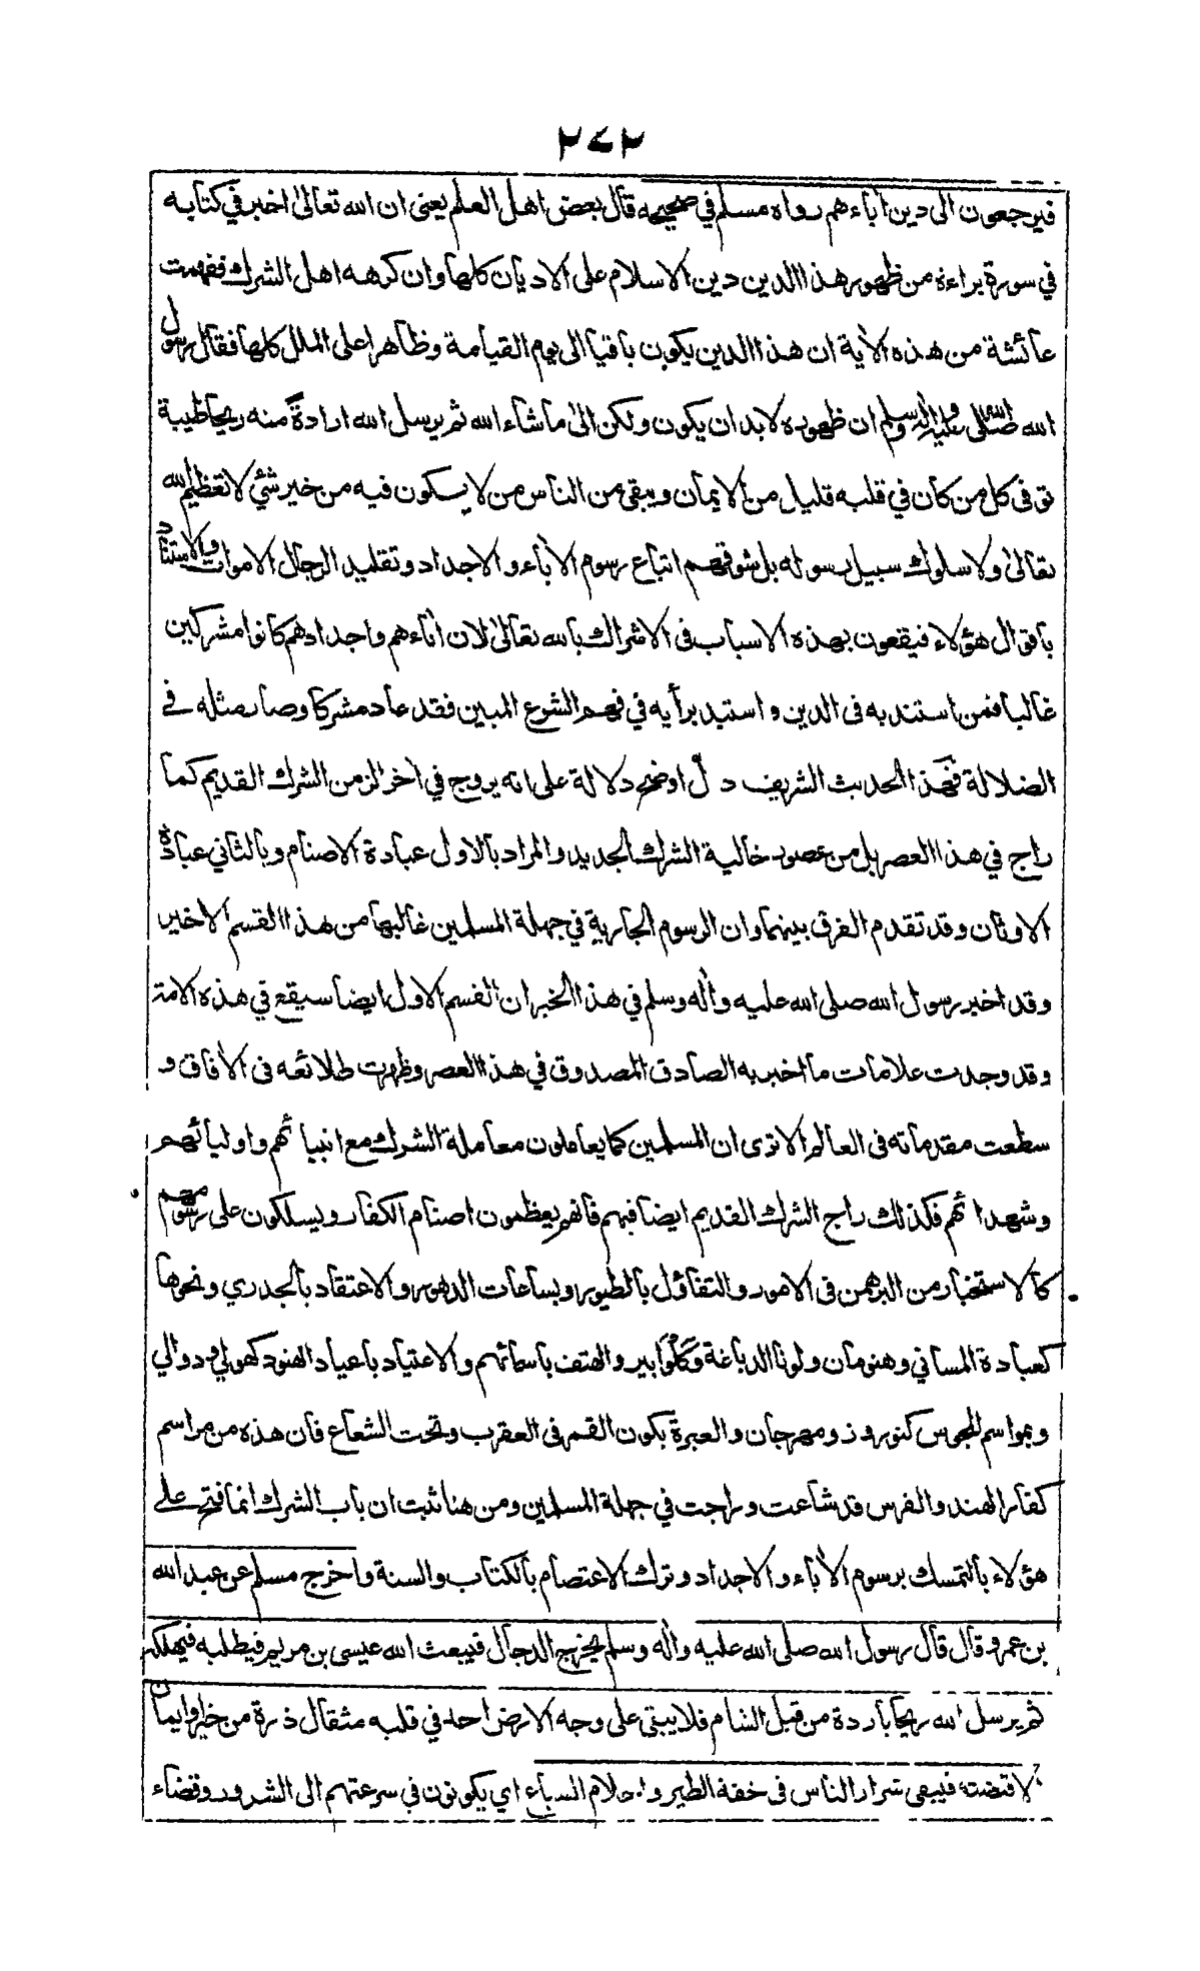 ٢٧٢
فيرجعون الى دين أباءهم رواه مسلم في صحيحه قال بعض اهل العلم يعنى ان الله تعالى اخبر في كتابه
في سورة براءة من ظهور هذا الدين دين الاسلام على الاديان كلها وان كرهه اهل الشرك ففهمت
عائشة من هذه الأية ان هذا الدين يكون باقيا الى يوم القيامة وظاهرا على الملل كلها فقال رسول
الله صلى الله عليه واله وسلم ان ظهوره لابد ان يكون ولكن الى ماشاء الله ثم يرسل الله ارادة منه ريحا طيبة
توفى كل من كان في قلبه قليل من الايمان ويبقى من الناس من لا يكون فيه من خير شئ لا تعظيم الله
تعالى ولا سلوك سبيل رسوله بل شوقهم اتباع رسوم الأباء والاجداد وتقليد الرجال الاموات والاستناد
باقوال هؤلاء فيقعون بهذه الاسباب فى الاشراك بالله تعالى لان أباءهم واجدادهم كانوا مشركين
غالبا فمن استند به فى الدين واستبد برأيه في فهم الشرع المبين فقد عاد مشركا وصار مثله في
الضلالة فهذا الحديث الشريف دل اوضح دلالة على انه يروج في أخر الزمن الشرك القديم كما
راج في هذا العصر بل من عصور خالية الشرك الجديد والمراد بالاول عبادة الاصنام وبالثاني عبادة
الاوثان وقد تقدم الفرق بينهما وان الرسوم الجارية في جهلة المسلمين غالبها من هذا القسم الاخير
وقد اخبر رسول الله صلى الله عليه وأله وسلم في هذا الخبر ان القسم الاول ايضا سيقع في هذه الامة
وقد وجدت علامات ما اخبر به الصادق المصدوق في هذا العصر وظهرت طلائعه فى الأفاق و
سطعت مقدماته فى العالم الا ترى ان المسلمين كما يعاملون معاملة الشرك مع انبيائهم واوليائهم
وشهدائهم فكذلك راج الشرك القديم ايضا فيهم فانهم يعظمون اصنام الكفار ويسلكون على رسومهم
كالاستخبار من البرهمن فى الامور والتفاؤل بالطيور وبساعات الدهور والاعتقاد بالجدري ونحوها
كعبادة المساني وهنومان ولونا الدباغة وكلوا بير والهتف باسمائهم والاعتياد باعياد الهنود كهولي ودوالي
وبمواسم المجوس كنوروز ومهرجان والعبرة بكون القمر فى العقرب وتحت الشعاع فان هذه من مراسم
كفار الهند والفرس قد شاعت وراجت في جهلة المسلمين ومن هنا ثبت ان باب الشرك انما فتح على
هؤلاء بالتمسك برسوم الأباء والاجداد وترك الاعتصام بالكتاب والسنة واخرج مسلم عن عبد الله
بن عمرو قال قال رسول الله صلى الله عليه وأله وسلم يخرج الدجال فيبعث الله عيسى بن مريم فيطلبه فيهلكه
ثم يرسل الله ريحا باردة من قبل الشام فلا يبقى على وجه الارض احد في قلبه مثقال ذرة من خير او ايمان
الا قبضته فيبقى شرار الناس فى خفة الطير واحلام السباع اي يكونون في سرعتهم الى الشرور وقضاء